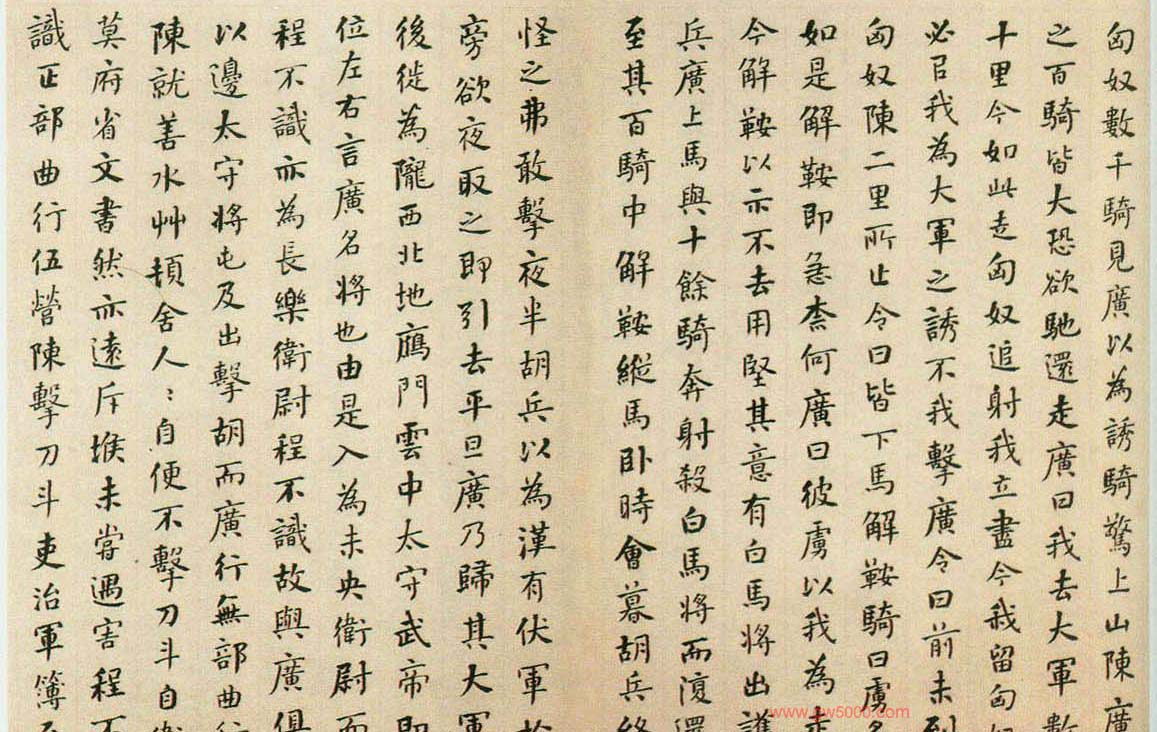 匈奴數千騎見廣以為誘騎驚上山陳廣
之百騎皆大恐欲馳還走廣曰我去大軍數
十里今如此走匈奴追射我立盡今我留匈奴
必以我為大軍之誘不我擊廣令曰前未到
匈奴陳二里所止令曰皆下馬解鞍騎曰虜多
如是解鞍即急柰何廣曰彼虜以我為走
今解鞍以示不去用堅其意有白馬將出護
兵廣上馬與十餘騎奔射殺白馬將而復還
至其百騎中解鞍縱馬卧時會暮胡兵終
怪之弗敢擊夜半胡兵以為漢有伏軍於
旁欲夜取之即引去平旦廣乃歸其大軍
後徙為隴西北地鴈門雲中太守武帝即
位左右言廣名將也由是入為未央衛尉而
程不識亦為長樂衛尉程不識故與廣俱
以邊太守將屯及出擊胡而廣行無部曲行
陳就善水艸頓舍人〻自便不擊刀斗自衛
莫府省文書然亦遠斥堠未嘗遇害程不
識正部曲行伍營陳擊刀斗吏治軍簿至
www.yw5000.com